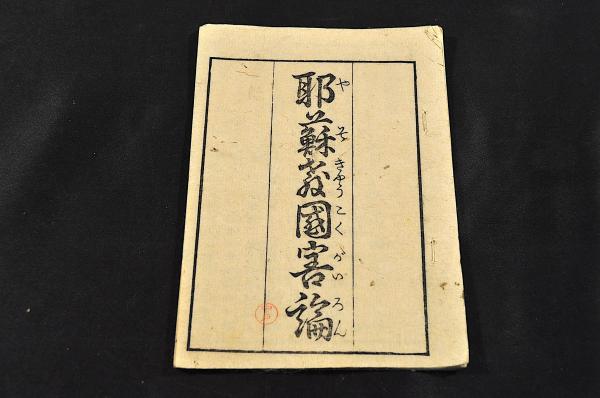 耶蘇教國害論
やそきようこくがいろん